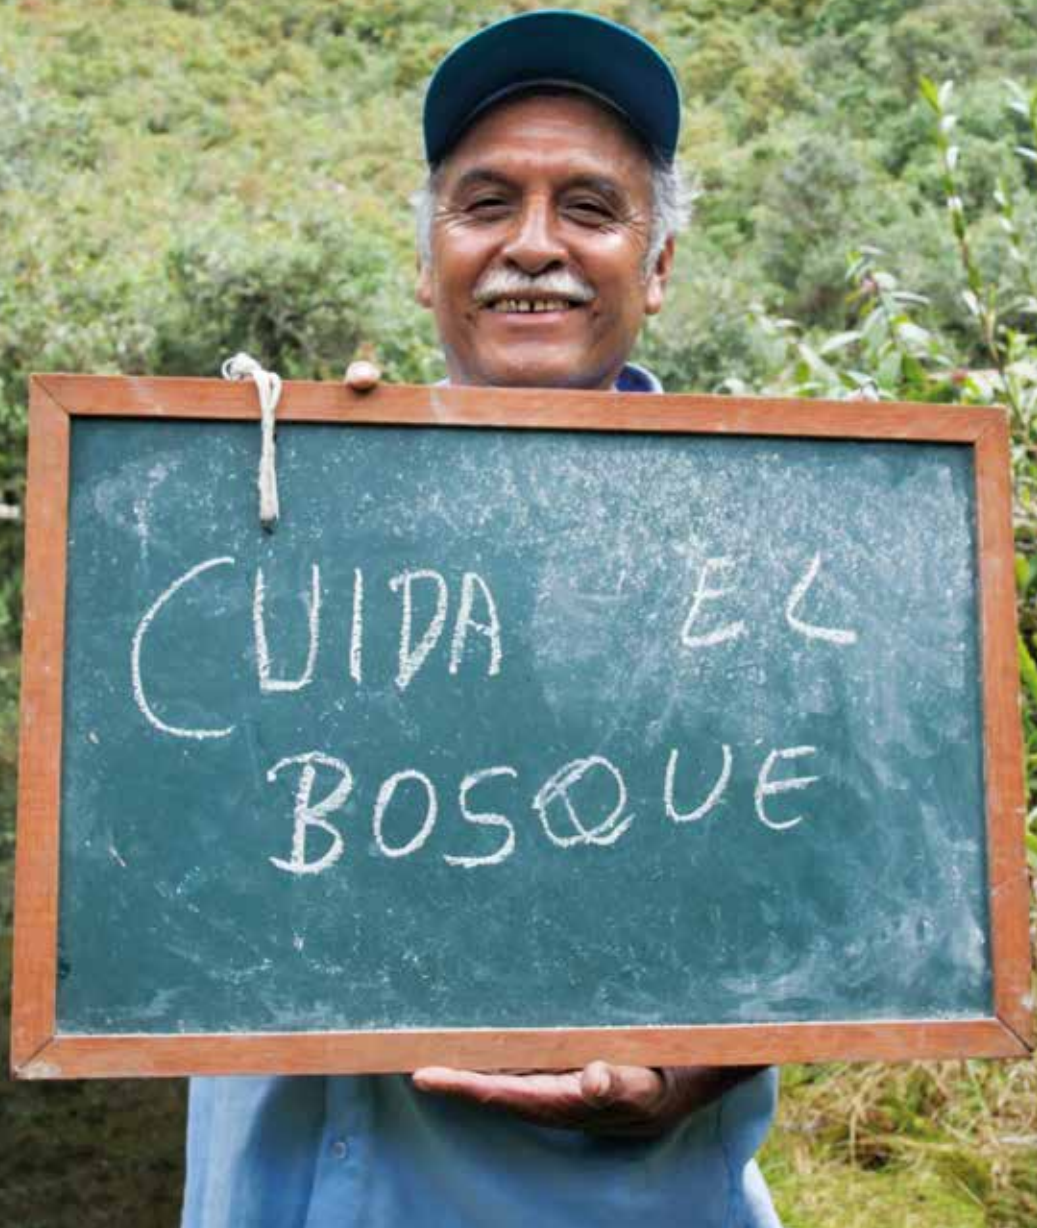 CUIDA EL
BOSQUE